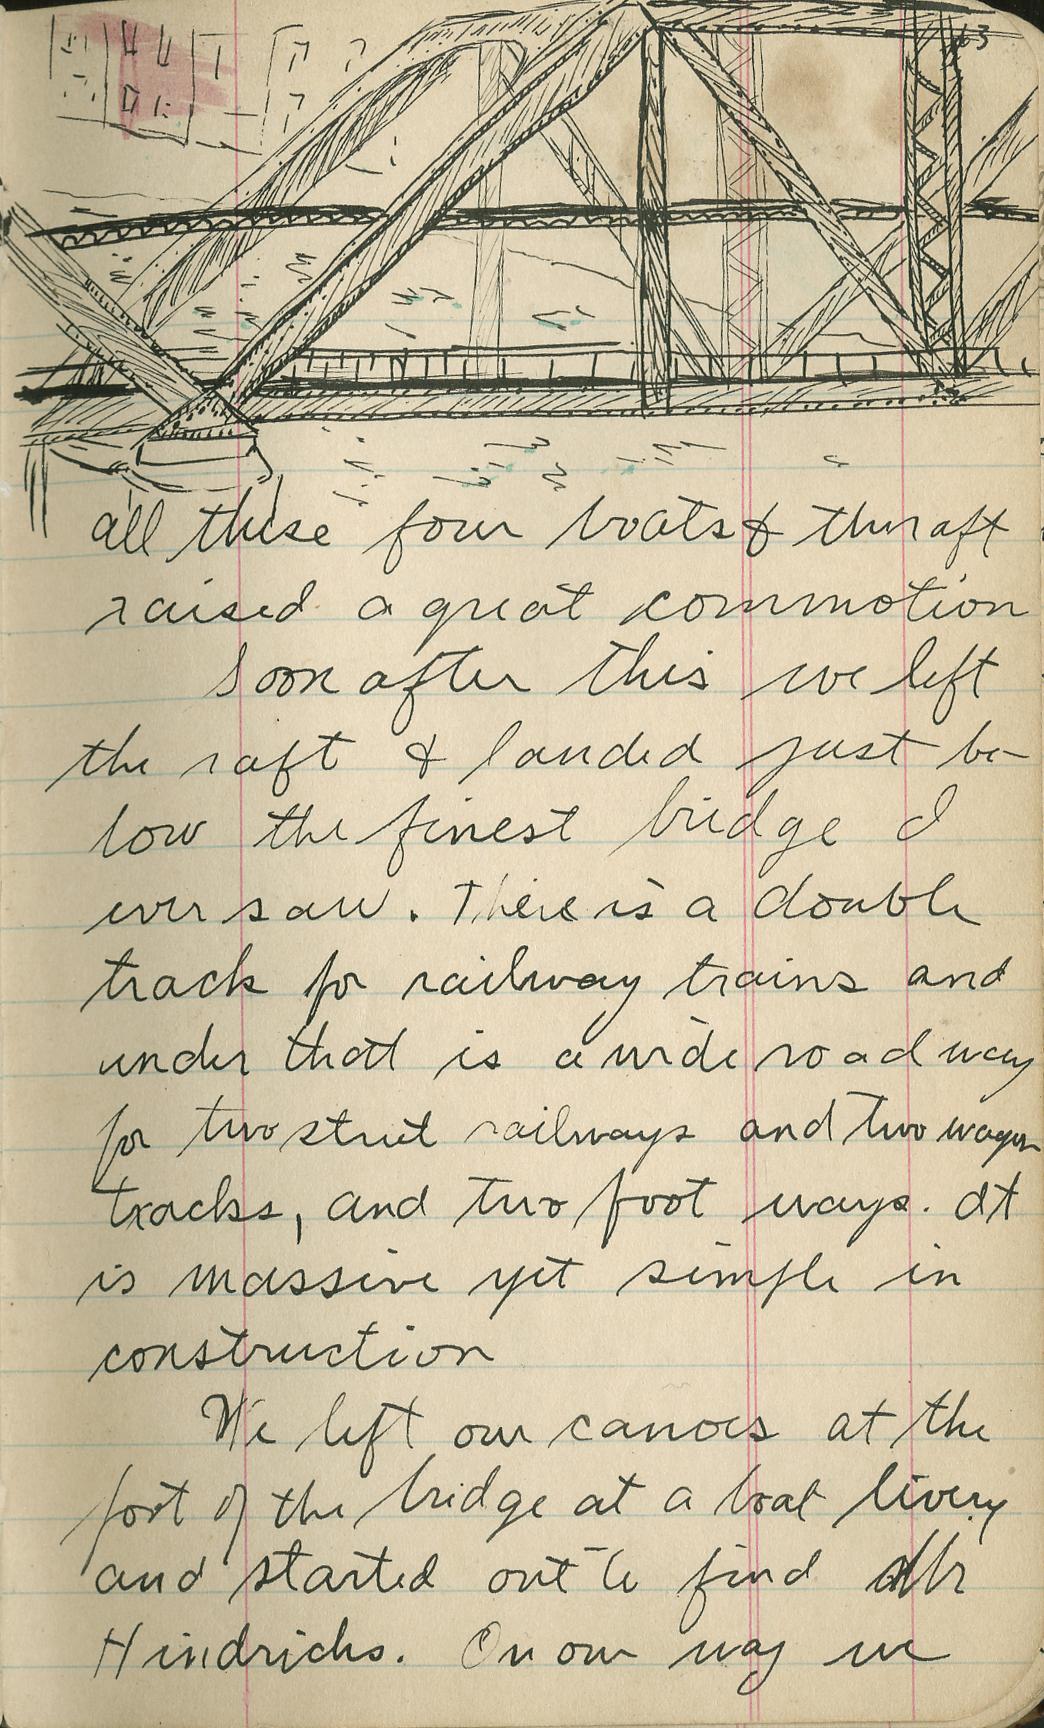 63
all these four boats & the raft
raised a great commotion
Soon after this we left
the raft & landed just be-
low the finest bridge I
ever saw. There is a double
track for railway trains and
under that is a wide road way
for two street railways and two wagon
tracks, and two foot ways. It
is massive yet simple in
construction
We left our canoes at the
foot of the bridge at a boat livery
and started out to find Mr
Hindrichs. On our way we